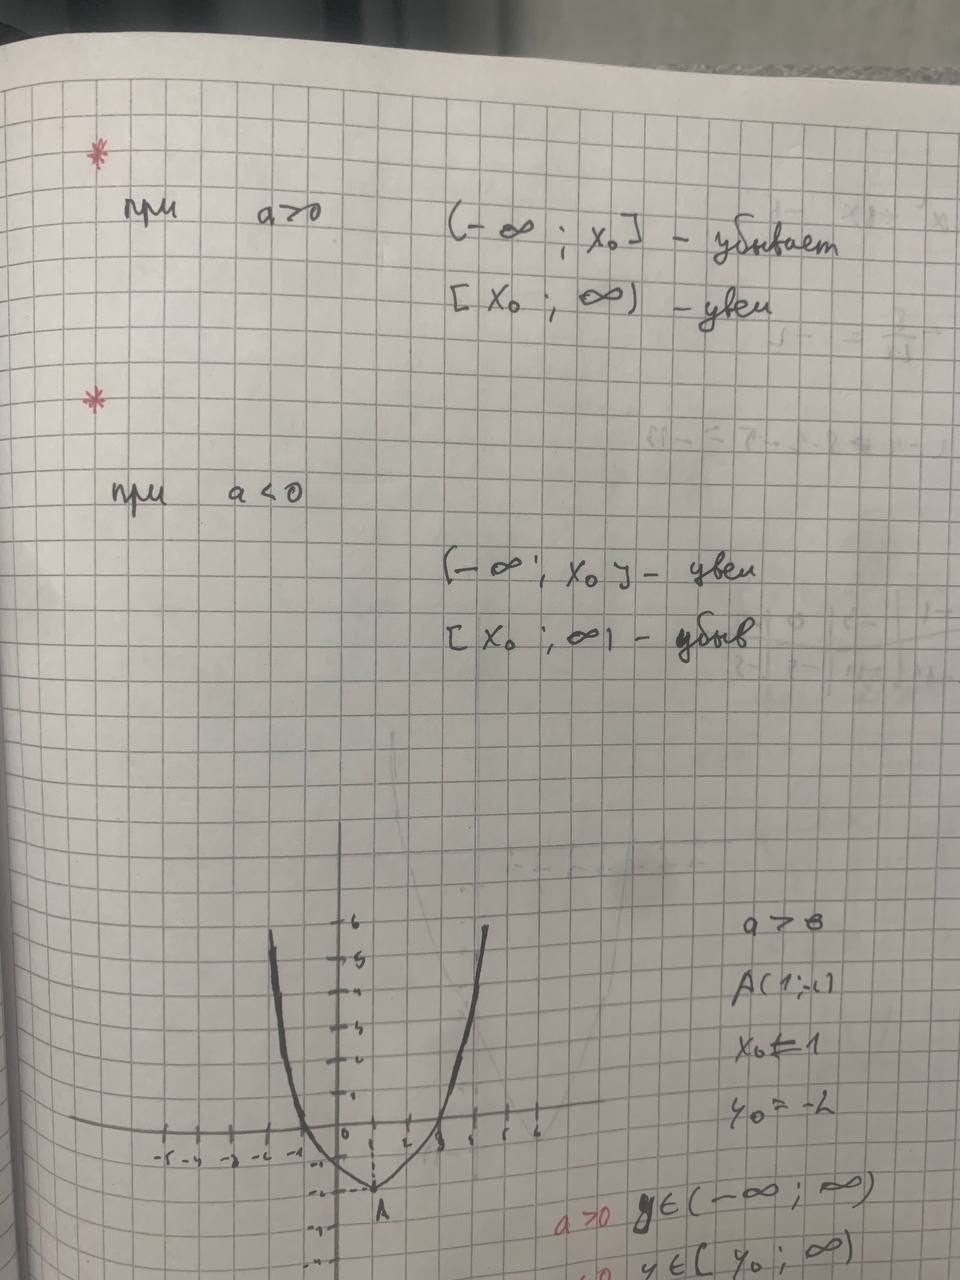 при a>0 (-∞ ; x₀] - убывает
[x₀ ; ∞) - увел
при a<0
(-∞ ; x₀] - увел
[x₀ ; ∞) - убыв
6
5
4
3
2
1
-5 -4 -3 -2 -1 0 1 2 3 4 5 6
-1
-2
-3
-4
A
a > 0
A(1;-2)
x₀ = 1
y₀ = -2
a>0 y∈(-∞ ; ∞)
y∈[y₀ ; ∞)